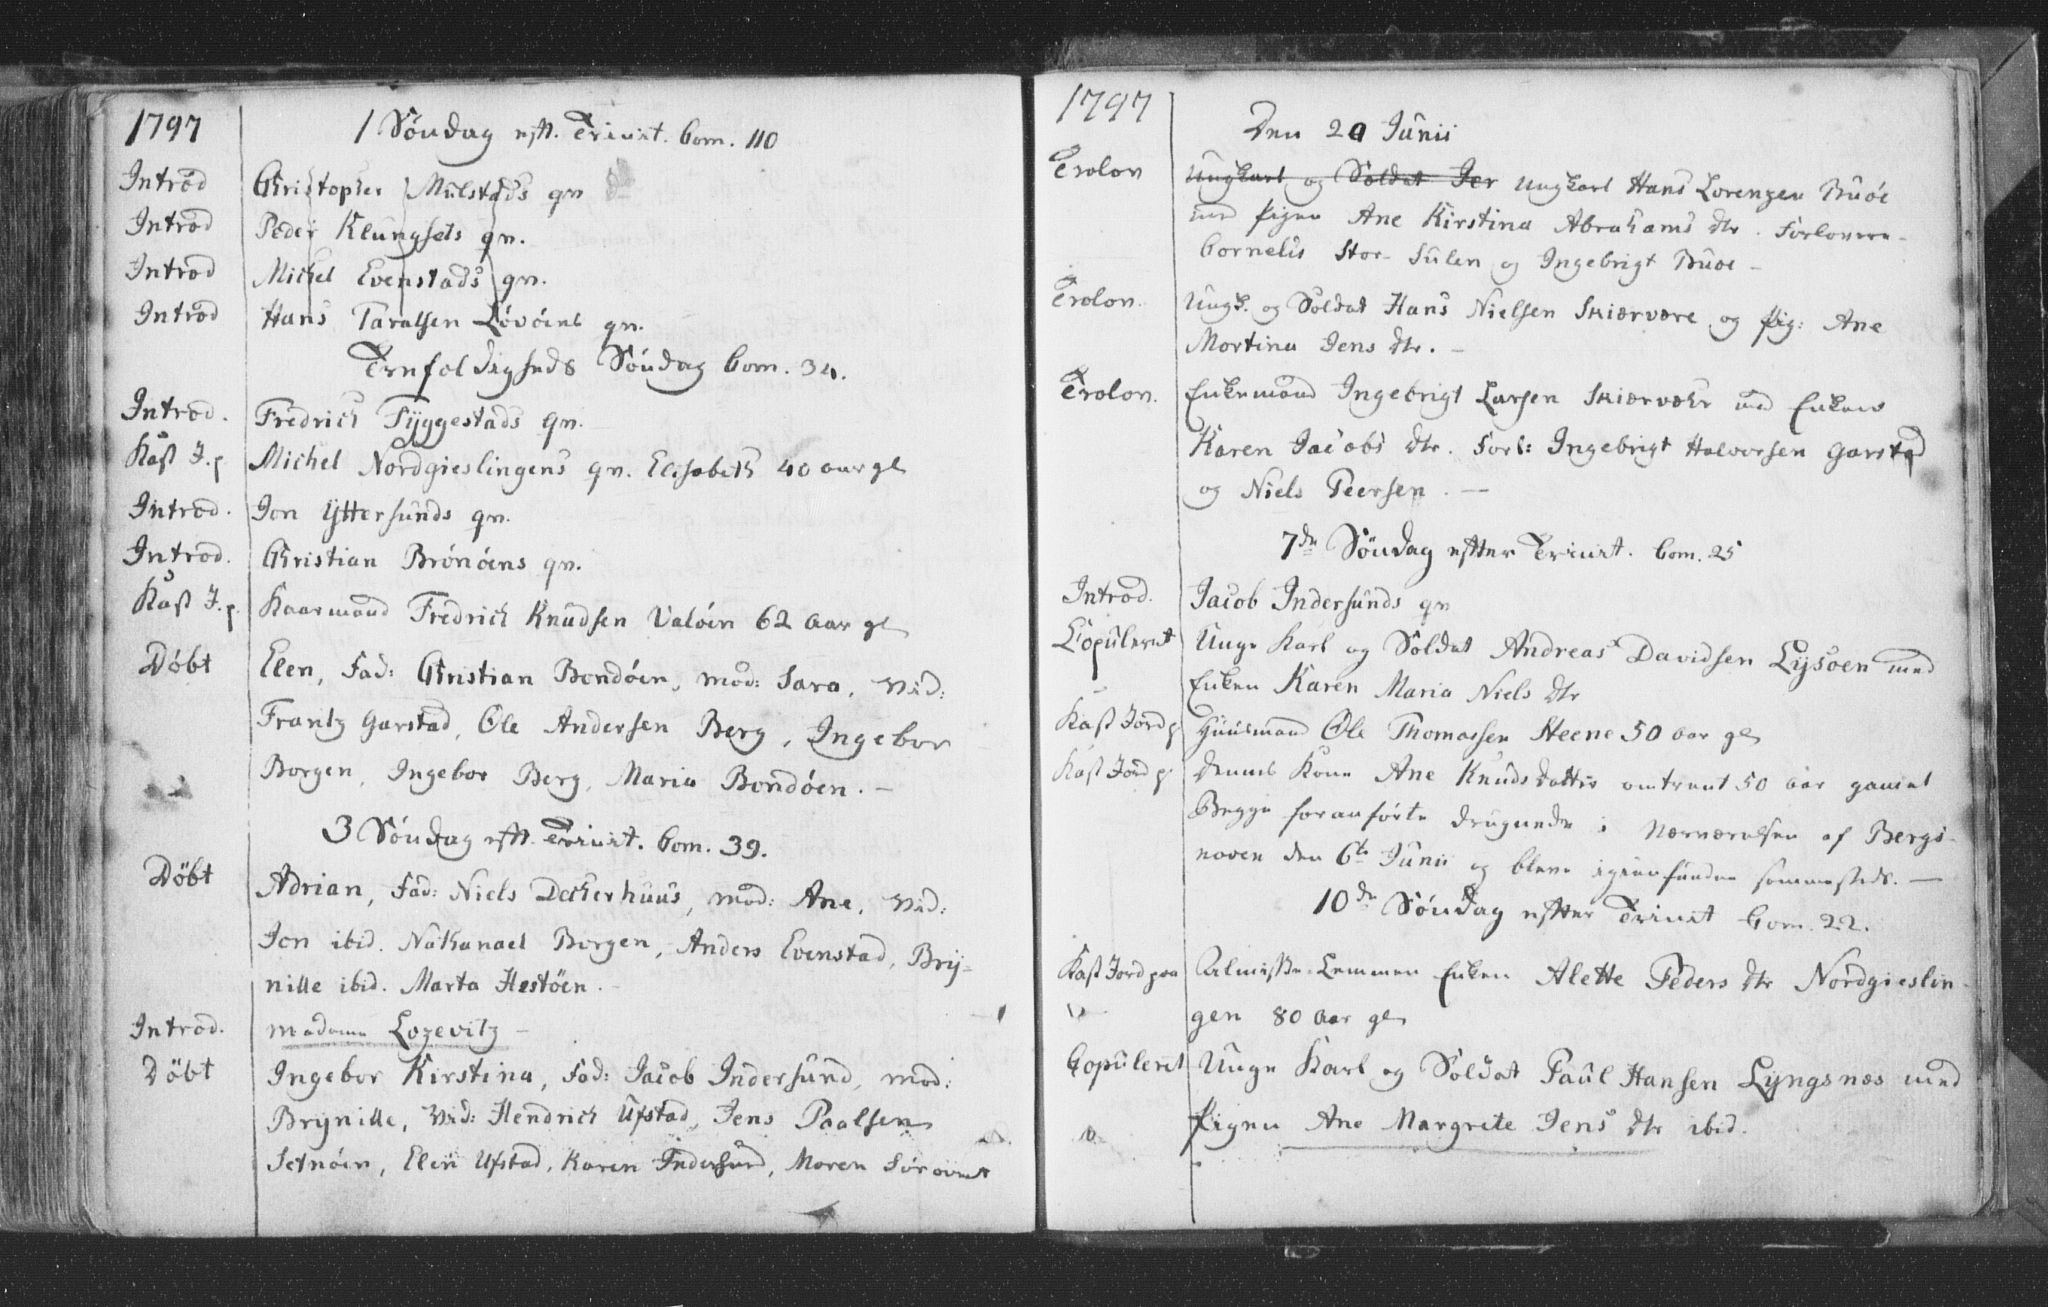 1797
1 Söndag eft. Trinit. Com. 110
Introd Christopher Milstads qv.
Introd Peder Klungsets qv.
Introd Michel Evenstads qv.
Introd Hans Taralsen Lövöens qv.
Trefoldigheds Söndag Com. 34.
Introd. Fredrich Tyggestads qv.
Kast J. p. Michel Nordgieslingens qv. Elisabeth 40 aar gl
Introd. Jon Yttersunds qv.
Introd. Christian Brönöens qv.
Kast J. p. Kaarmand Fredrich Knudsen Valöen 62 aar gl
Döbt Elen, Fad: Christian Bondöen, mod: Sara, Vid:
Frantz Garstad, Ole Andersen Berg, Ingebor
Borgen, Ingebor Berg, Maria Bondöen. –
3 Söndag eft. Trinit. Com. 39.
Döbt Adrian, Fad: Niels Dekerhuus, mod: Ane, Vid:
Jon ibid. Nathanael Borgen, Anders Evenstad, Bry=
nille ibid. Marta Hestöen. –
Introd. Madame Lozevitz –
Döbt Ingebor Kirstina, Fad: Jacob Indersund, mod:
Brynille, Vid: Hendrich Ufstad, Jens Paalsen
Setnöen, Elen Ufstad, Karen Indersund, Maren
1797
Den 20 Junii
Trolov. Ungkarl og Soldat Jer Ungkarl Hans Lorenzen Buöe
med Pigen Ane Kirstina Abrahams dtr. Forlovere
Cornelis Stor-Sulen og Ingebrigt Buöe –
Trolov. Ungk. og Soldat Hans Nielsen Skiærvære og Pig: Ane
Mortina Jens dtr. –
Trolov. Enkemand Ingebrigt Larsen Skiærvær med Enken
Karen Jacobs dtr. Forl: Ingebrigt Halvorsen Garstad
og Niels Peersen. –
7de Söndag efter Trinit. Com. 25
Introd. Jacob Indersunds qv
Copuleret Unge Karl og Soldat Andreas Davidsen Lysöen med
Enken Karen Maria Niels dtr
Kast Jord p Huusmand Ole Thomassen Steene 50 aar gl
Kast Jord p. dennes Kone Ane Knuds datter omtrent 50 aar gamel
Begge foranförte druknede i Nærværelsen af Bergs-
noven den 6te Junii og bleve igienfundne sammesteds. –
10de Söndag efter Trinit Com. 22.
Kast Jord paa Almisse-Lemmen Enken Alette Peders dtr Nordgieslin-
gen 80 aar gl
Copuleret Unge Karl og Soldat Paul Hansen Lyngsnæs med
Pigen Ane Margrete Jens dtr ibid.